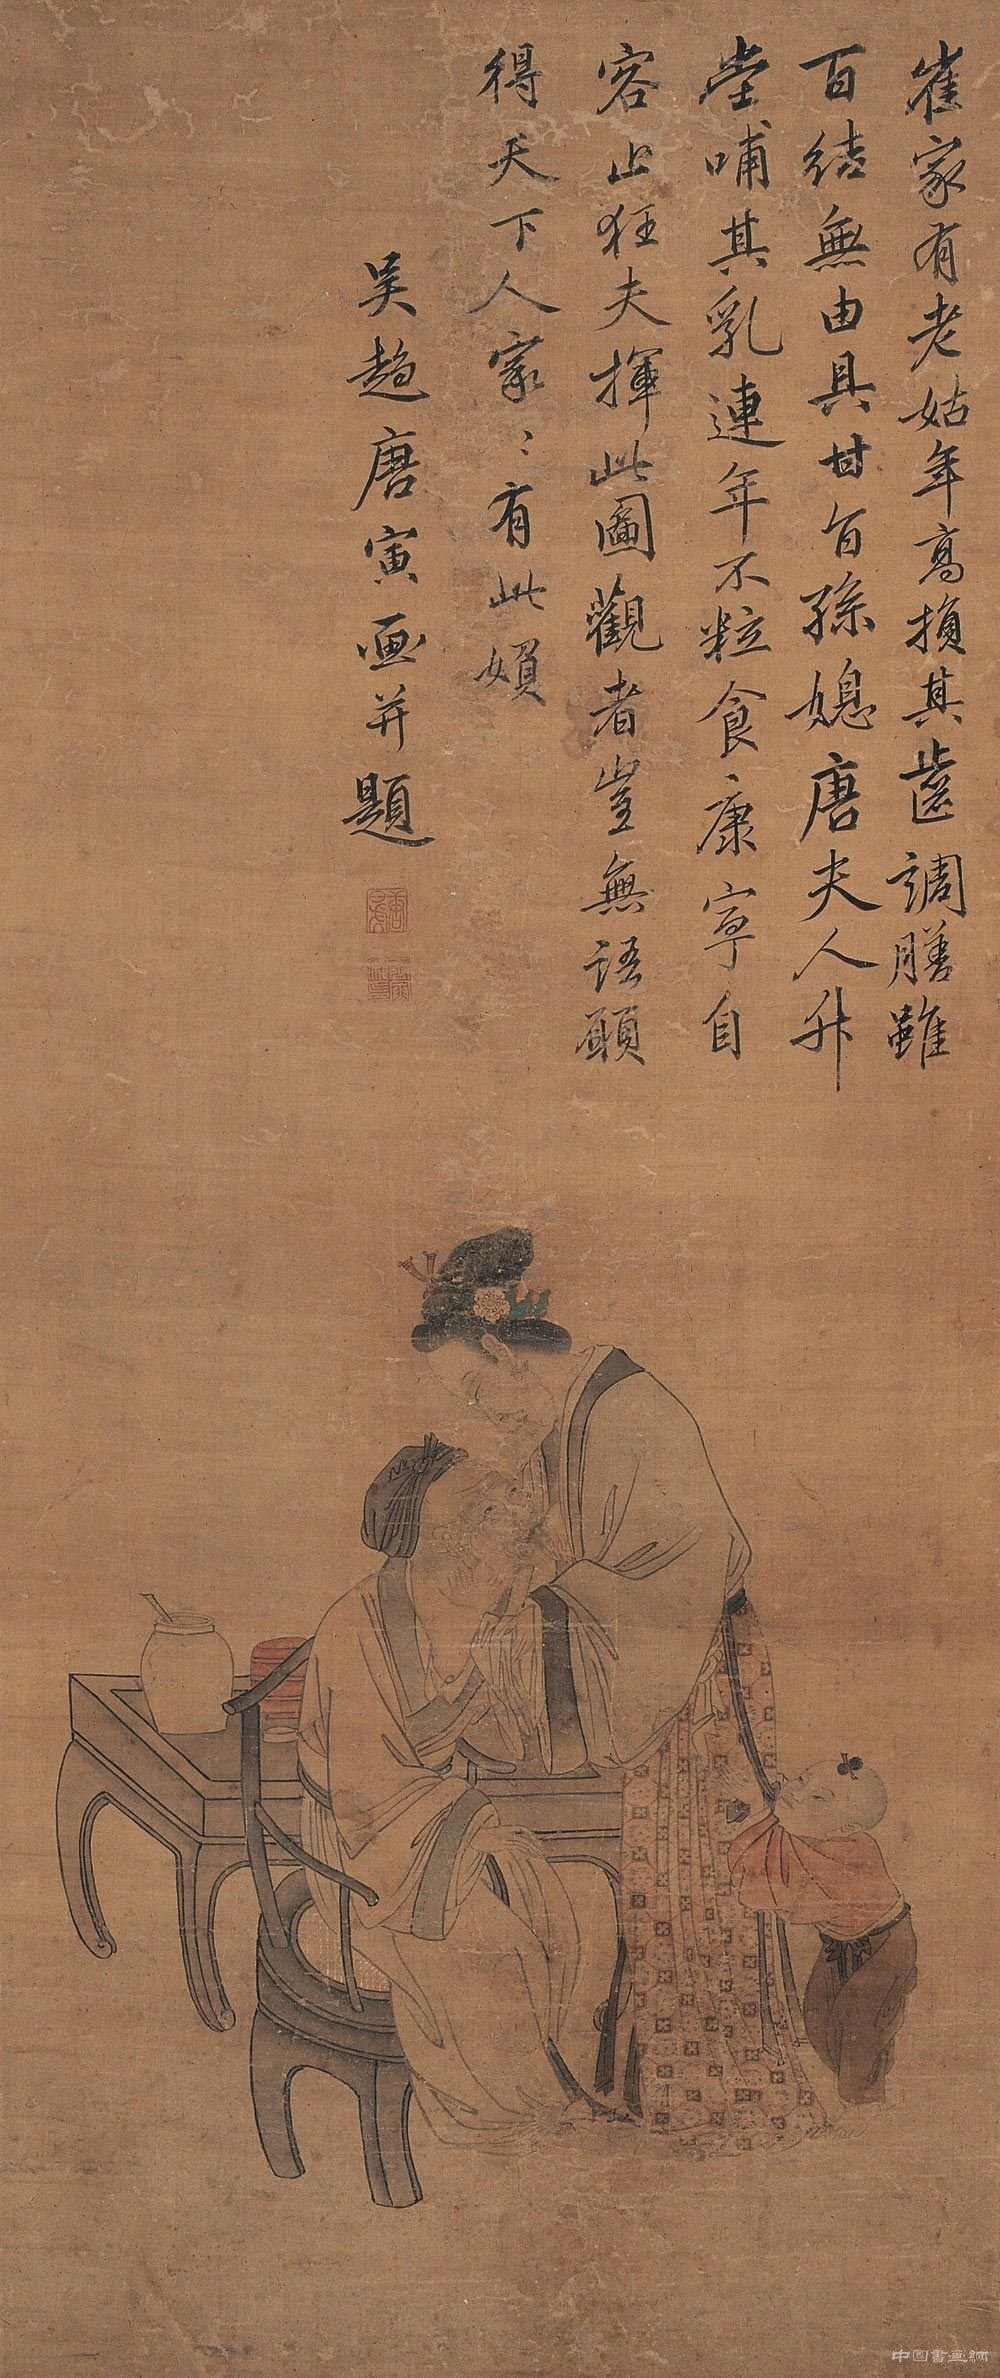 崔家有老姑年高損其齒調膳雖
百結無由具甘旨孫媳唐夫人升
堂哺其乳連年不粒食康寧自
容止狂夫揮此圖觀者豈無語願
得天下人家〻有此媍
吳趨唐寅畫并題
中国書画網